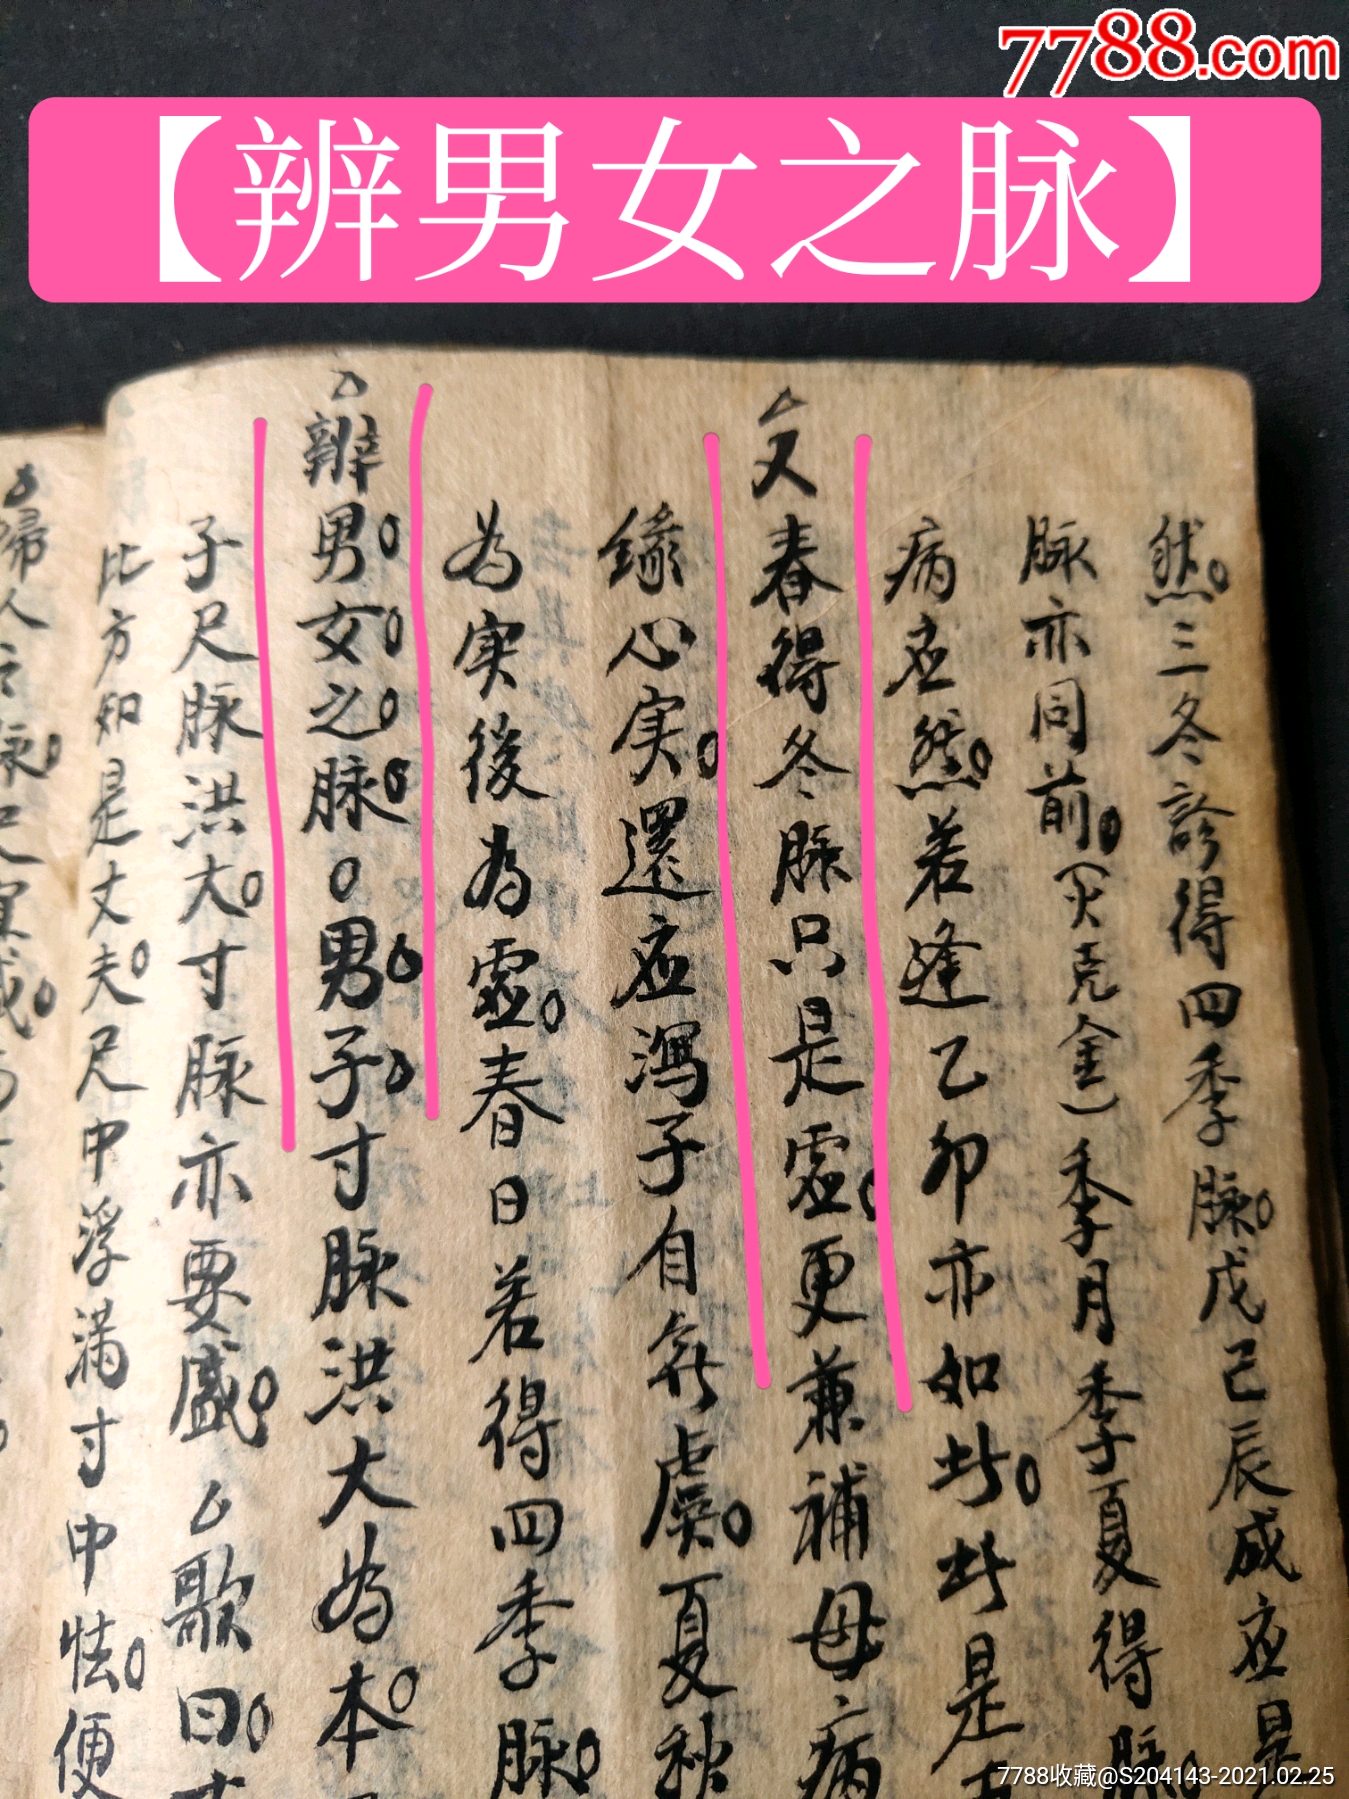 7788.com
【辨男女之脉】
然。三冬診得四季脉。戊己辰戌应是
脉亦同前。(火克金)季月季夏得脉。
病应然。若逢乙卯亦如此。此是
又春得冬脉只是虚。更兼補母病
緣心实。還应瀉子自無虞。夏秋
為实後為虚。春日若得四季脉。
辨男。女。之。脉。○男。子。寸脉洪大為本。
子尺脉洪大。寸脉亦要盛。歌曰。寸
比方知是丈夫。尺中浮满寸中怯。便
婦人之脉。尺宜盛。
7788收藏@S204143-2021.02.25